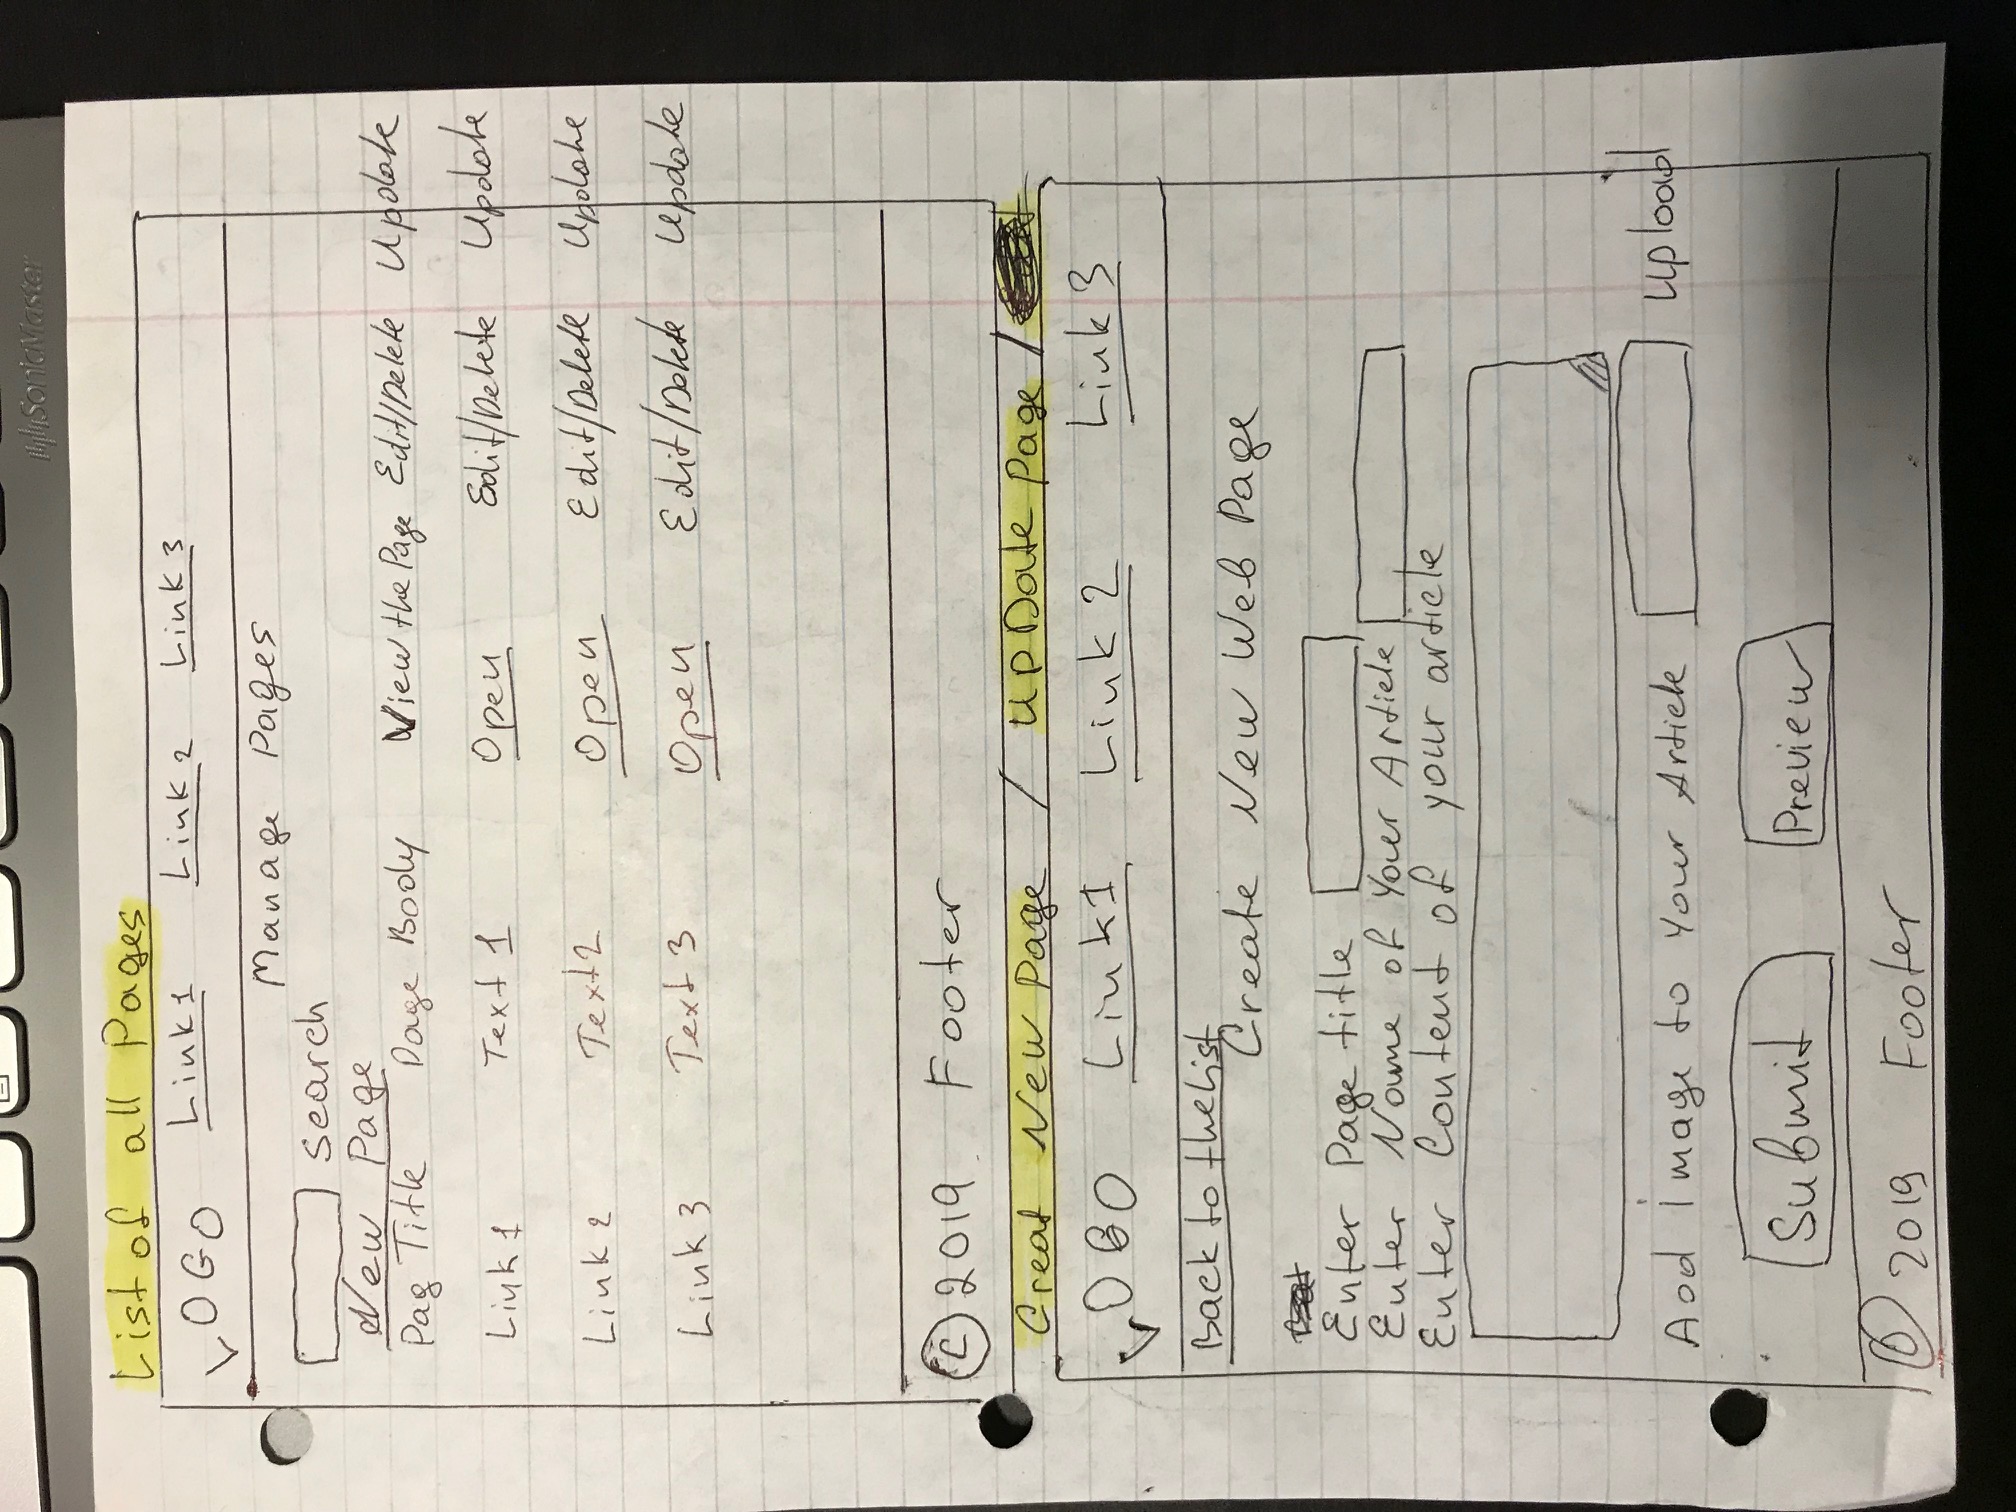 SonicMaster
List of all Pages
LOGO Link1 Link 2 Link 3
Manage Pages
search
New Page
Pag Title Page Body View the Page Edit/Delete Update
Link 1 Text 1 Open Edit/Delete Update
Link 2 Text2 Open Edit/Delete Update
Link 3 Text 3 Open Edit/Delete Update
© 2019 Footer
Creat New Page / UpDate Page /
LOGO Link1 Link 2 Link 3
Back to the list
Create New Web Page
Enter Page title
Enter Name of Your Article
Enter Content of your article
Add image to Your Article Upload
Submit Preview
© 2019 Footer